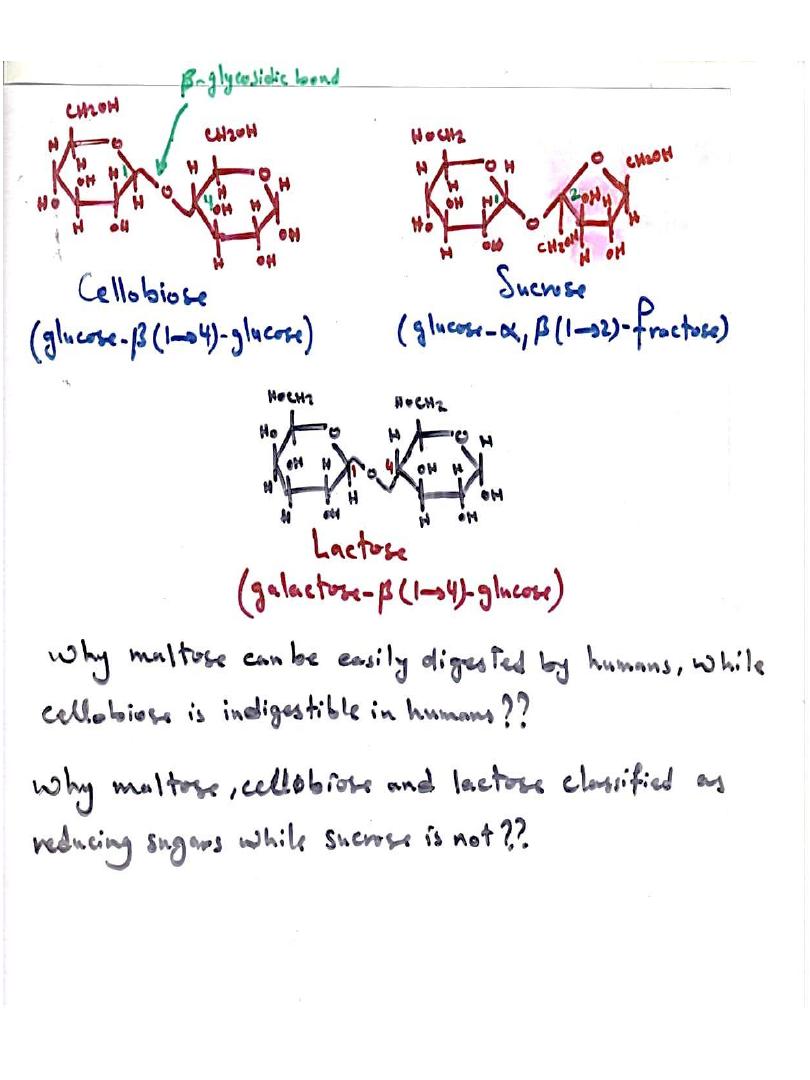 β-glycosidic bond
CH2OH
CH2OH
H O H 1 OH H H HO H OH H
O
H O H 4 H OH H H OH H OH
Cellobiose
(glucose-β(1→4)-glucose)
HOCH2
H O H H OH H 1 HO H OH
O
O CH2OH 2 OH H CH2OH H OH
Sucrose
(glucose-α, β(1→2)-fructose)
HOCH2
HOCH2
HO O OH H 1 H H H OH
O
H O H 4 OH H OH H OH
Lactose
(galactose-β(1→4)-glucose)
Why maltose can be easily digested by humans, while
cellobiose is indigestible in humans??
Why maltose, cellobiose and lactose classified as
reducing sugars while sucrose is not??